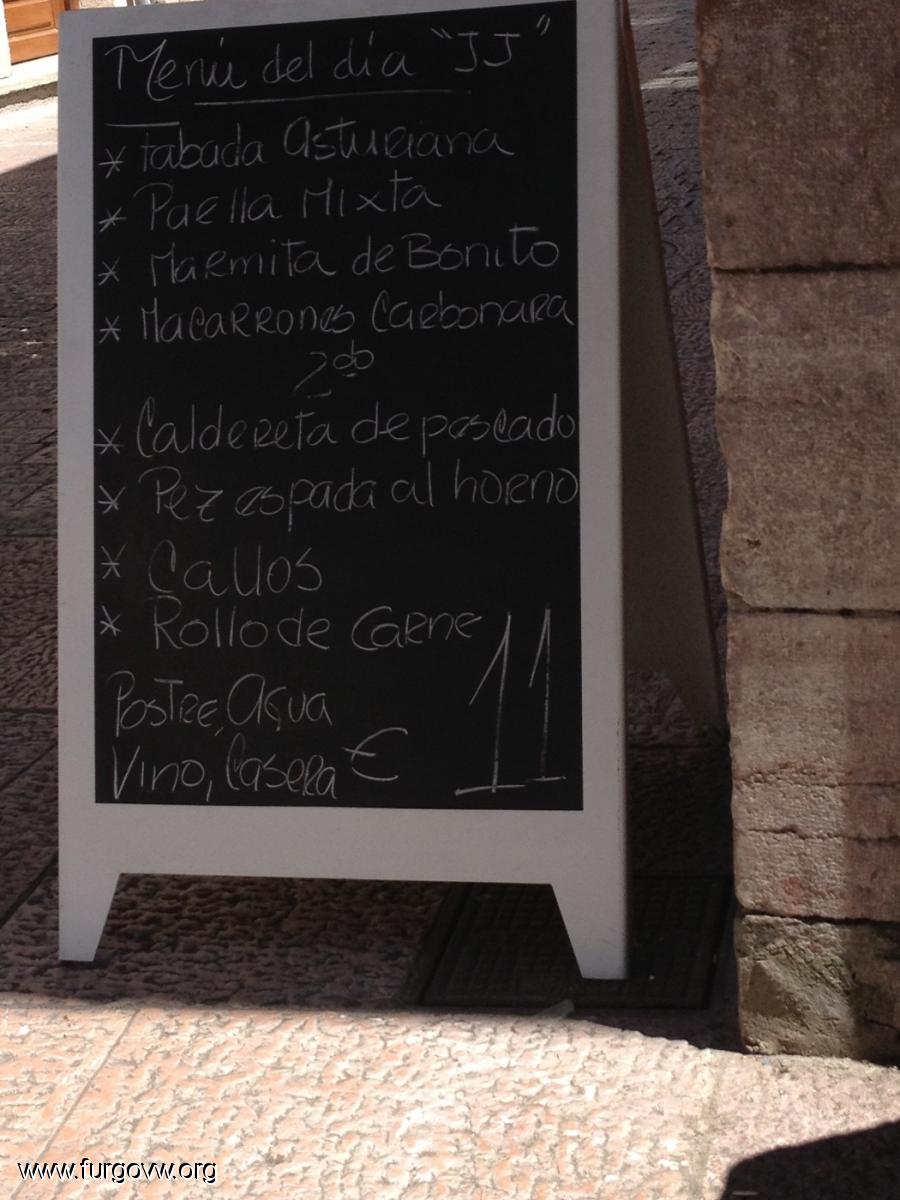 Menú del día "JJ"
* Fabada Asturiana
* Paella Mixta
* Marmita de Bonito
* Macarrones Carbonara
2do
* Caldereta de pescado
* Pez espada al horno
* Callos
* Rollo de Carne
Postre, Agua
Vino, Casera € 11
www.furgovw.org